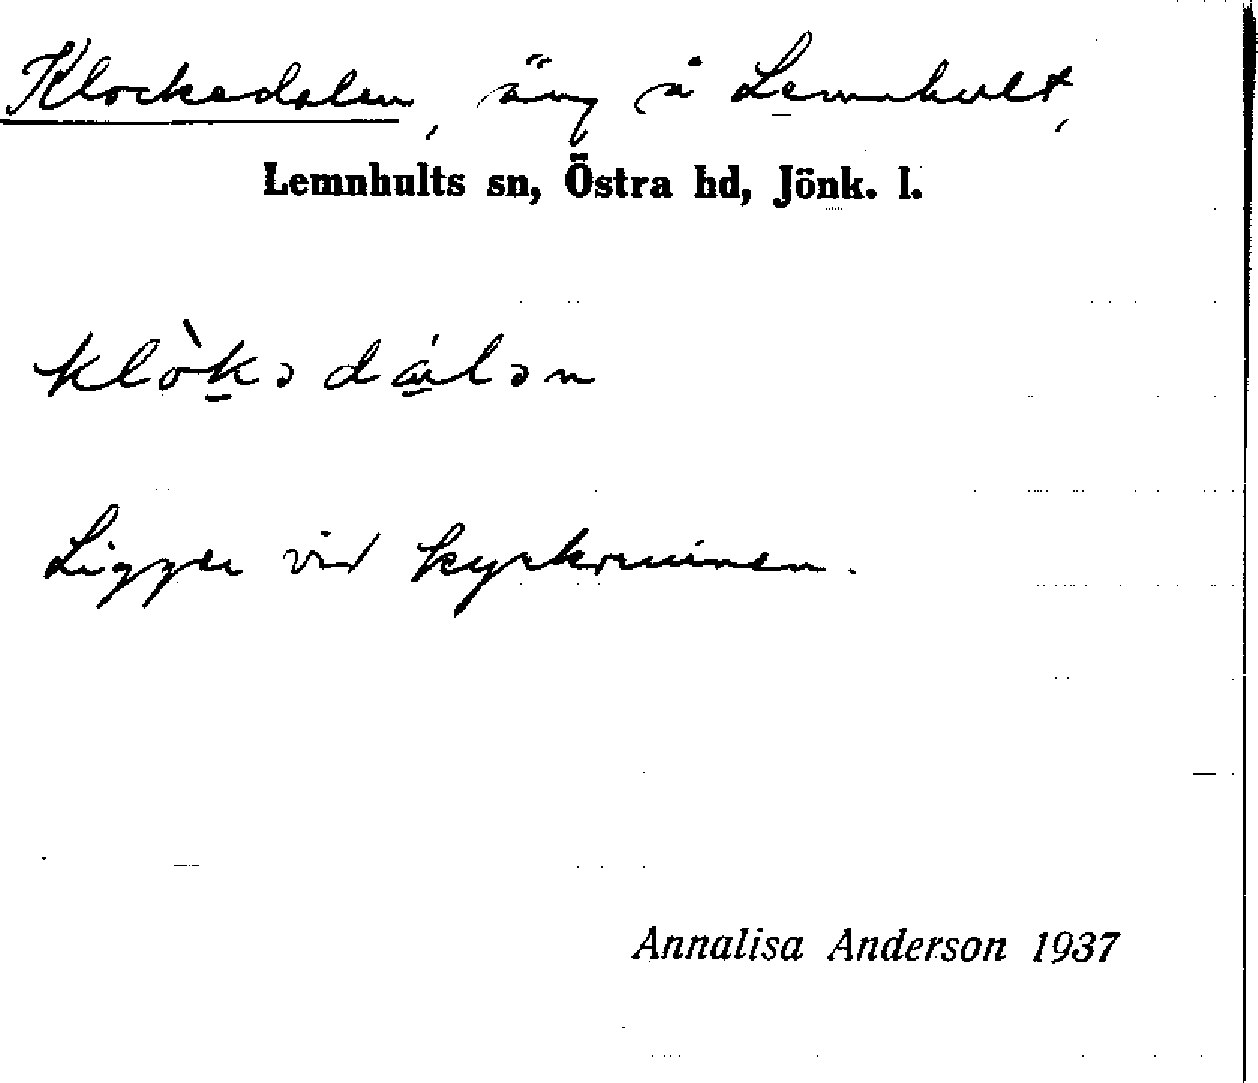 Klockedalen, äng å Lemnhult,
Lemnhults sn, Östra hd, Jönk. l.
klòkədálən
Ligger vid kyrkruinen.
Annalisa Anderson 1937